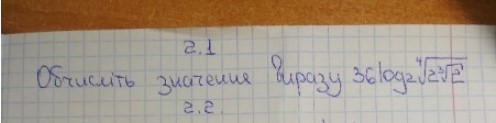 2.1
Обчисліть значення виразу 36log₂⁴√(2∛2)
2.2.